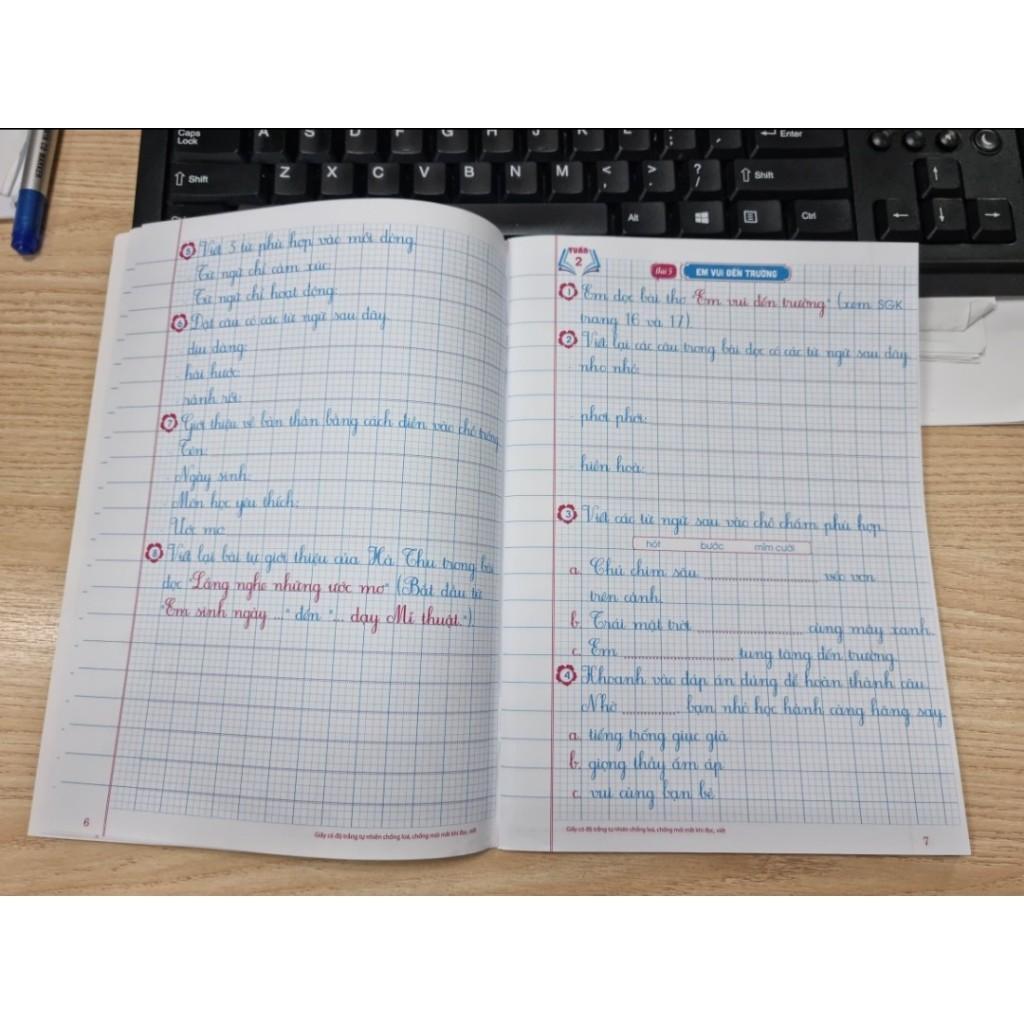 5 Viết 3 từ phù hợp vào mỗi dòng.
- Từ ngữ chỉ cảm xúc:
- Từ ngữ chỉ hoạt động:
6 Đặt câu có các từ ngữ sau đây.
- dịu dàng:
- hài hước:
- rảnh rỗi:
7 Giới thiệu về bản thân bằng cách điền vào chỗ trống.
- Tên:
- Ngày sinh:
- Môn học yêu thích:
- Ước mơ:
8 Viết lại bài tự giới thiệu của Hà Thu trong bài
đọc "Lắng nghe những ước mơ" (Bắt đầu từ
"Em sinh ngày ..." đến "... dạy Mĩ thuật.").
6
Giấy có độ trắng tự nhiên chống loá, chống mỏi mắt khi đọc, viết
TUẦN
2
Bài 3 EM VUI ĐẾN TRƯỜNG
1 Em đọc bài thơ "Em vui đến trường" (xem SGK
trang 16 và 17).
2 Viết lại các câu trong bài đọc có các từ ngữ sau đây.
- nho nhỏ:
- phơi phới:
- hiền hoà:
3 Viết các từ ngữ sau vào chỗ chấm phù hợp.
hót bước mỉm cười
a. Chú chim sâu .................... véo von
trên cành.
b. Trái mặt trời .................... cùng mây xanh.
c. Em .................... tung tăng đến trường.
4 Khoanh vào đáp án đúng để hoàn thành câu.
Nhờ .......... bạn nhỏ học hành càng hăng say.
a. tiếng trống giục giã
b. giọng thầy ấm áp
c. vui cùng bạn bè
Giấy có độ trắng tự nhiên chống loá, chống mỏi mắt khi đọc, viết
7
Caps Lock
A S D F G H J K L
Enter
Shift
Z X C V B N M < , > . ? /
Shift
Alt
Ctrl